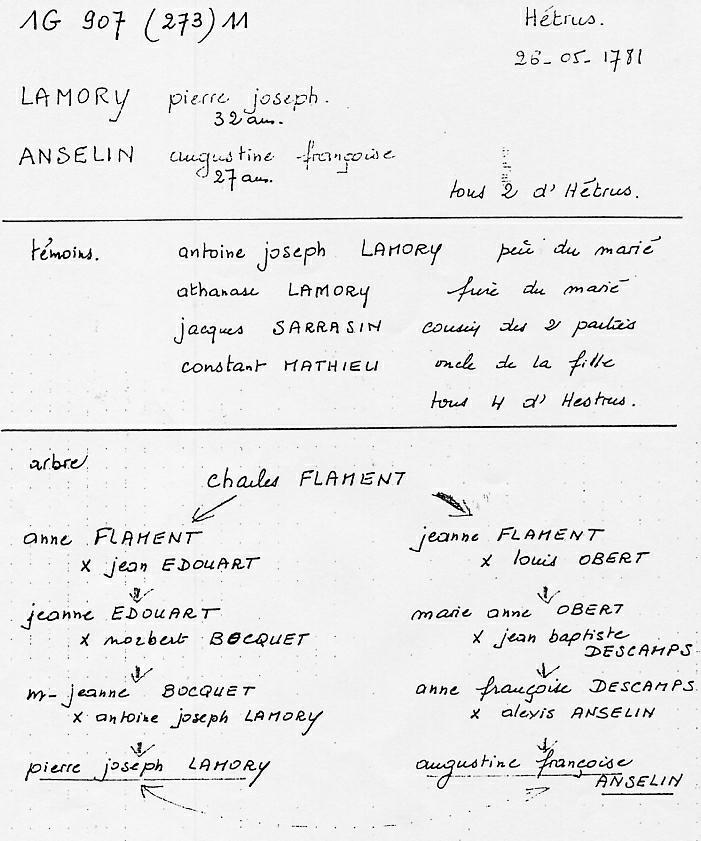 1G 907 (273) 11
Hétrus.
26-05-1781
LAMORY pierre joseph.
32 ans.
ANSELIN augustine françoise
27 ans.
tous 2 d'Hétrus.
témoins. antoine joseph LAMORY père du marié
athanase LAMORY frère du marié
jacques SARRASIN cousin des 2 parties
constant MATHIEU oncle de la fille
tous 4 d'Hestrus.
arbre
charles FLAMENT
anne FLAMENT jeanne FLAMENT
x jean EDOUART x louis OBERT
jeanne EDOUART marie anne OBERT
x norbert BOCQUET x jean baptiste
DESCAMPS
m-jeanne BOCQUET anne françoise DESCAMPS
x antoine joseph LAMORY x alexis ANSELIN
pierre joseph LAMORY augustine françoise
ANSELIN